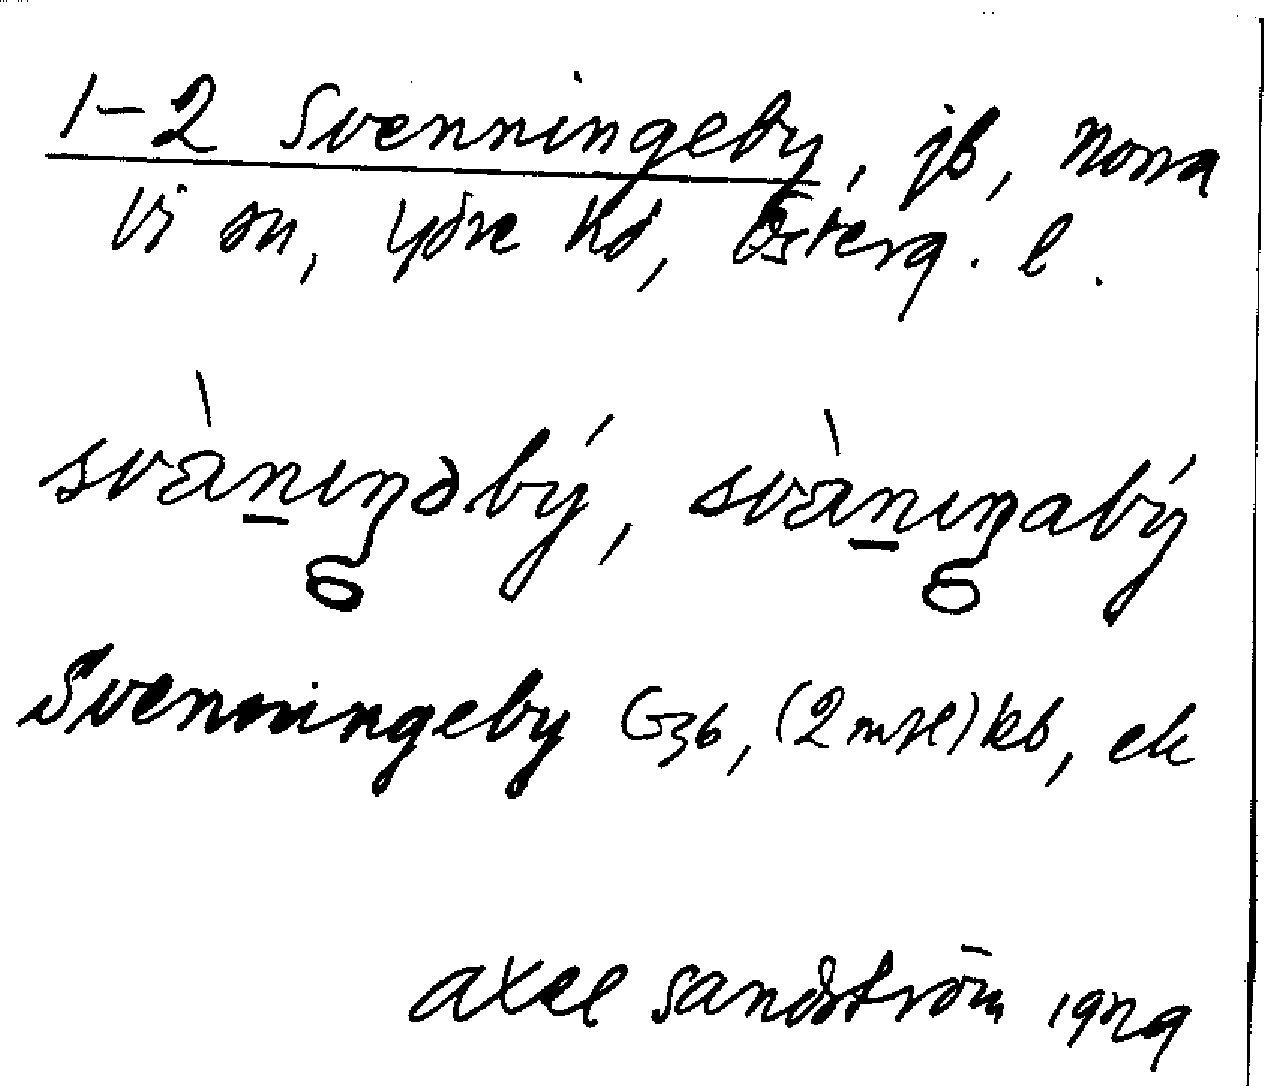 1-2 Svenningeby, jb, Norra
Vi sn, Ydre hd, Österg. l.
svànıŋəbý, svànıŋabý
Svenningeby G36, (2 mtl) kb, ek
Axel Sandström 1929